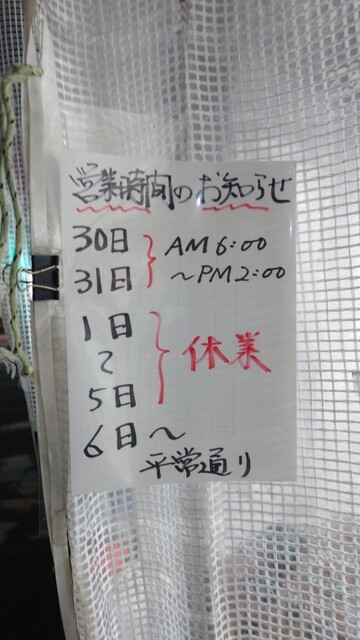 営業時間のお知らせ
30日
31日
AM6:00
～PM2:00
1日
〜
5日
休業
6日～
平常通り